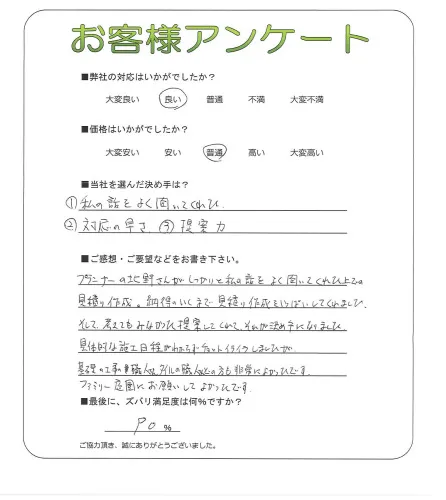 お客様アンケート
■弊社の対応はいかがでしたか?
大変良い 良い 普通 不満 大変不満
■価格はいかがでしたか?
大変安い 安い 普通 高い 大変高い
■当社を選んだ決め手は?
①私の話をよく聞いてくれた.
②対応の早さ. ③提案力
■ご感想・ご要望などをお書き下さい。
プランナーの北野さんがしっかりと私の話をよく聞いてくれた上での
見積り作成。納得のいくまで見積り作成をいっぱいしてくれました.
そして、考えてもみなかった提案してくれて、それが決め手になりました
具体的な施工日程がわからずちょっとイライラしましたが.
基礎の工事の職人さん、タイルの職人さんとの方も非常によかったです.
ファミリー庭園にお願いしてよかったです.
■最後に、ズバリ満足度は何%ですか?
90 %
ご協力頂き、誠にありがとうございました。